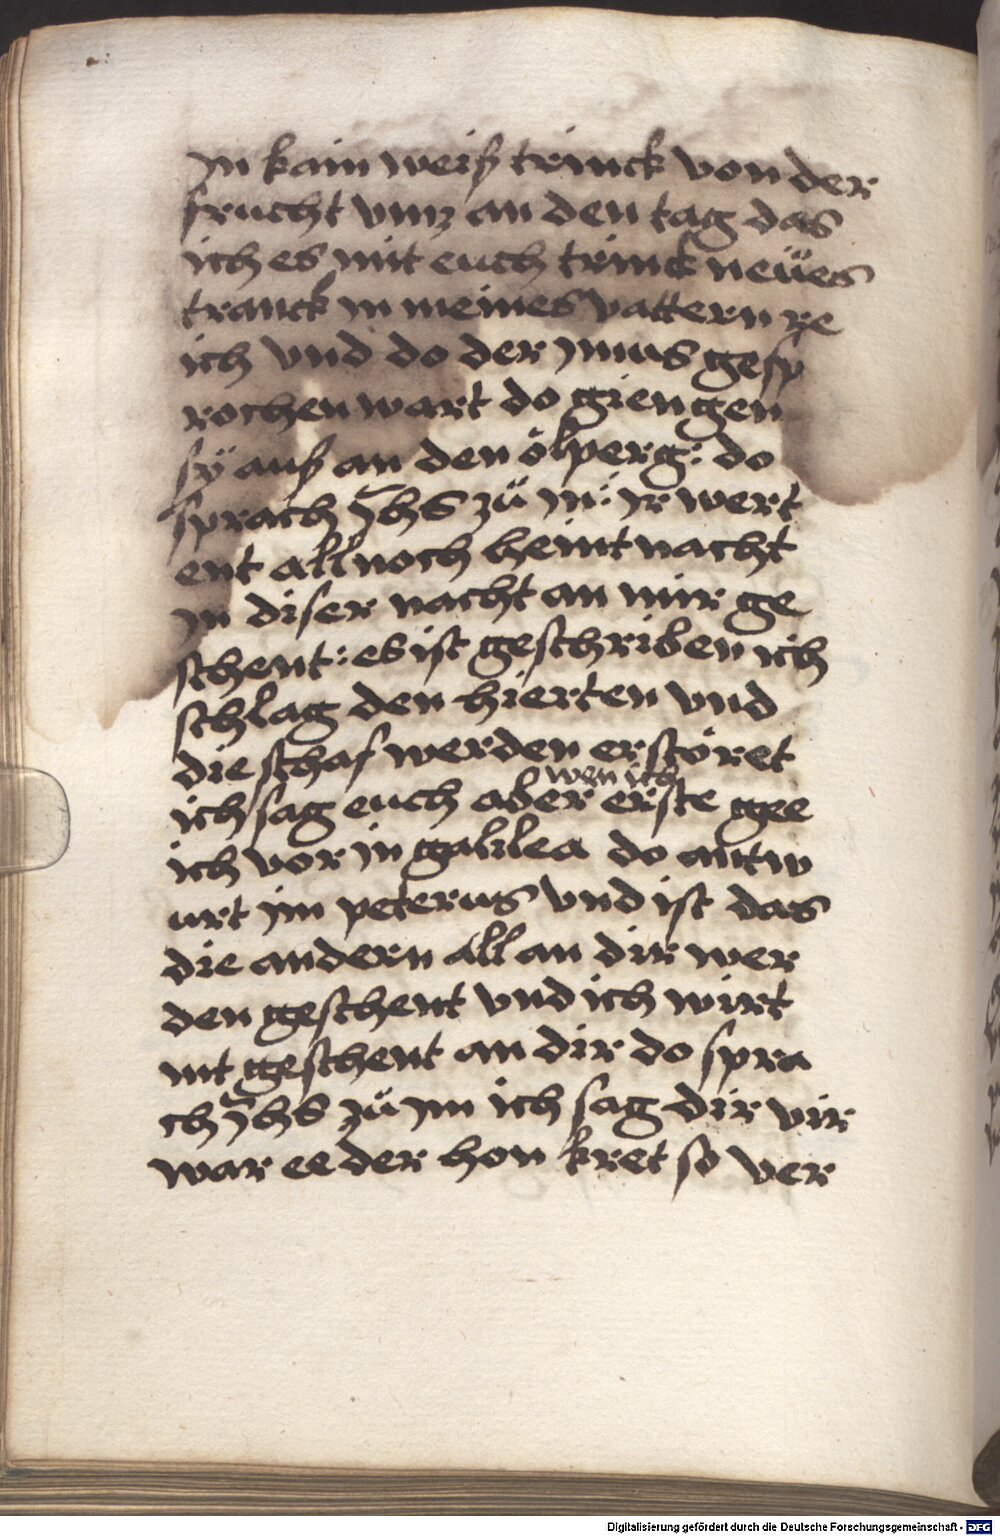 jn kain weiß trinck von der
frucht vnnz an den tag das
ich es mit euch trinck neües
tranck jn meines vattern re
ich vnd do der jmus gesp
rochen wart do giengen
sÿ auß an den ölperg: do
sprach Jhs zü jn: jr wert
ent all noch heint nacht
jn diser nacht an mir ge
schent: es ist geschriben ich
schlag den hierten vnd
die schaf werden erstöret
wen ich
ich sag euch aber erste gee
ich vor jn galilea do antw
urt jm peterus vnd ist das
die andern all an dir wer
den geschent vnd ich wirt
nit geschent an dir do spra
ch Jhs zü jm ich sag dir vir
war ee der hon kret so ver
Digitalisierung gefördert durch die Deutsche Forschungsgemeinschaft - DFG